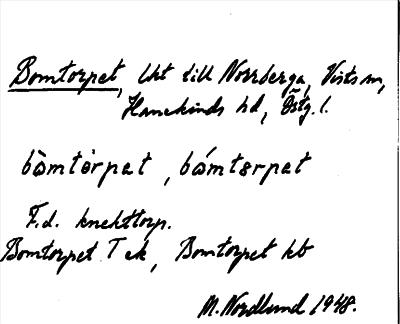 Bomtorpet, lht till Norrberga, Vists sn,
Hanekinds hd, Östg. l.
bòmtòrpat, bómtorpat
F.d. knekttorp.
Bomtorpet T ek, Bomtorpet kb
M. Nordlund 1948.